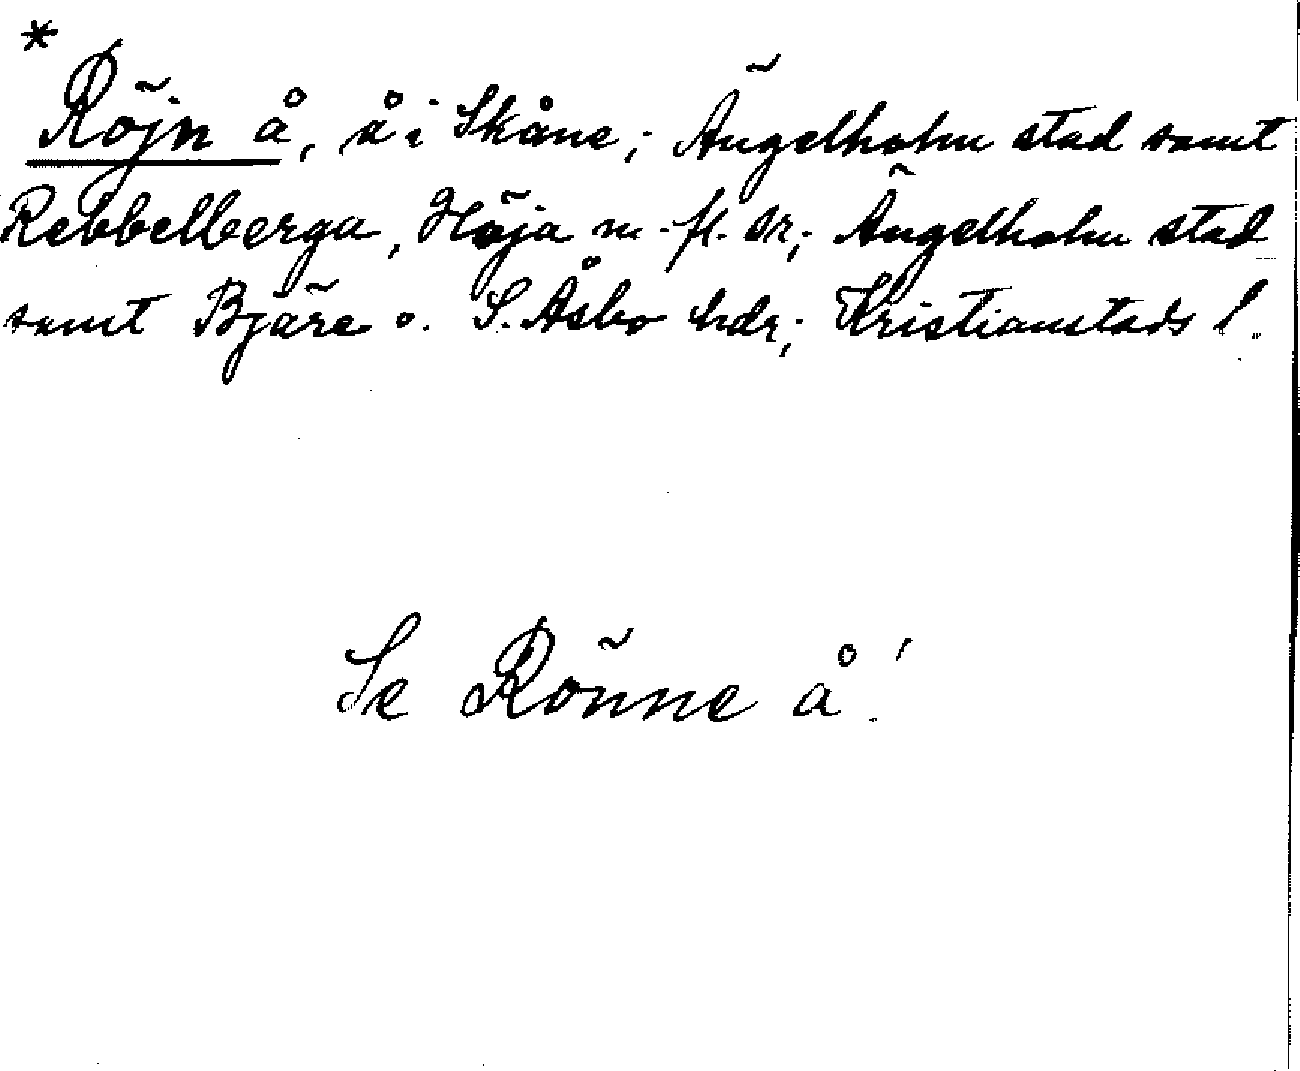 *
Röjn å, å i Skåne; Ängelholm stad samt
Rebbelberga, Höja m. fl. snr; Ängelholm stad
samt Bjäre o. S. Åsbo hdr; Kristianstads l.
Se Rönne å!